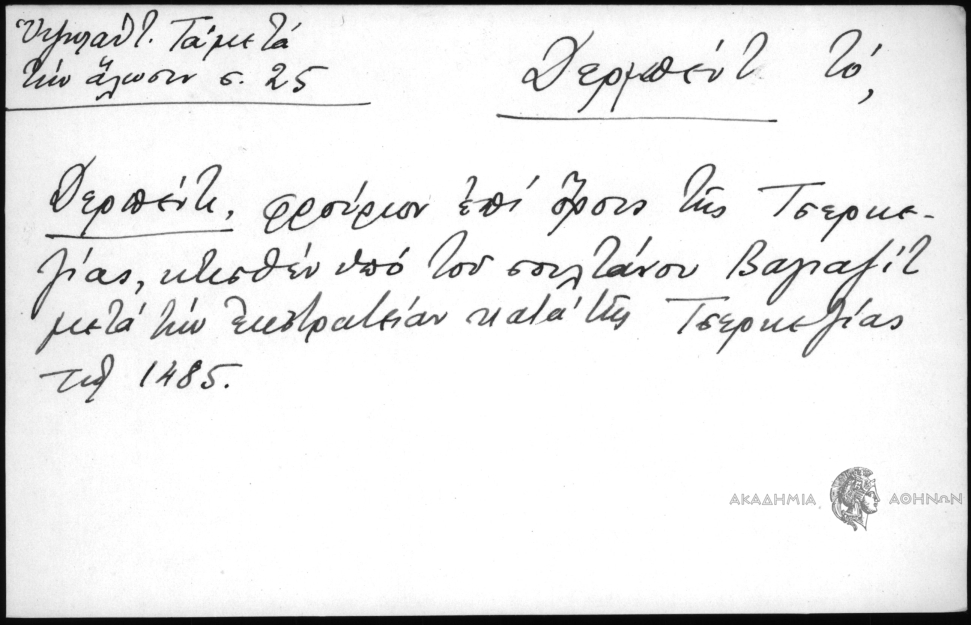 Υψηλάντ. Τά μετά
τήν ἅλωσιν σ. 25
Δερμπέντ τό,
Δερπέντι, φρούριον ἐπί ὄρους τῆς Τσερκε-
ζίας, κτισθέν ὑπό του σουλτάνου Βαγιαζίτ
μετά τήν ἐκστρατείαν κατά τῆς Τσερκεζίας
τῷ 1485.
ΑΚΑΔΗΜΙΑ ΑΘΗΝΩΝ